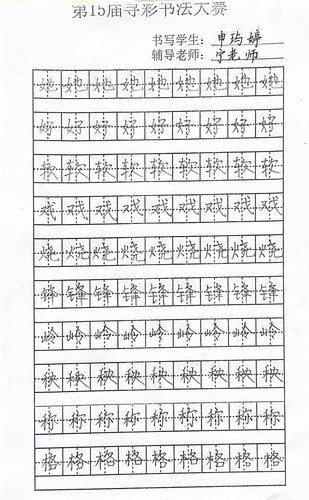 第15届寻彩书法大赛
书写学生：申玓婷
辅导老师：宁老师
她她她她她她她她她
好好好好好好好好好
软软软软软软软软软
戏戏戏戏戏戏戏戏戏
烧烧烧烧烧烧烧烧烧
锋锋锋锋锋锋锋锋锋
岭岭岭岭岭岭岭岭岭
秧秧秧秧秧秧秧秧秧
称称称称称称称称称
格格格格格格格格格